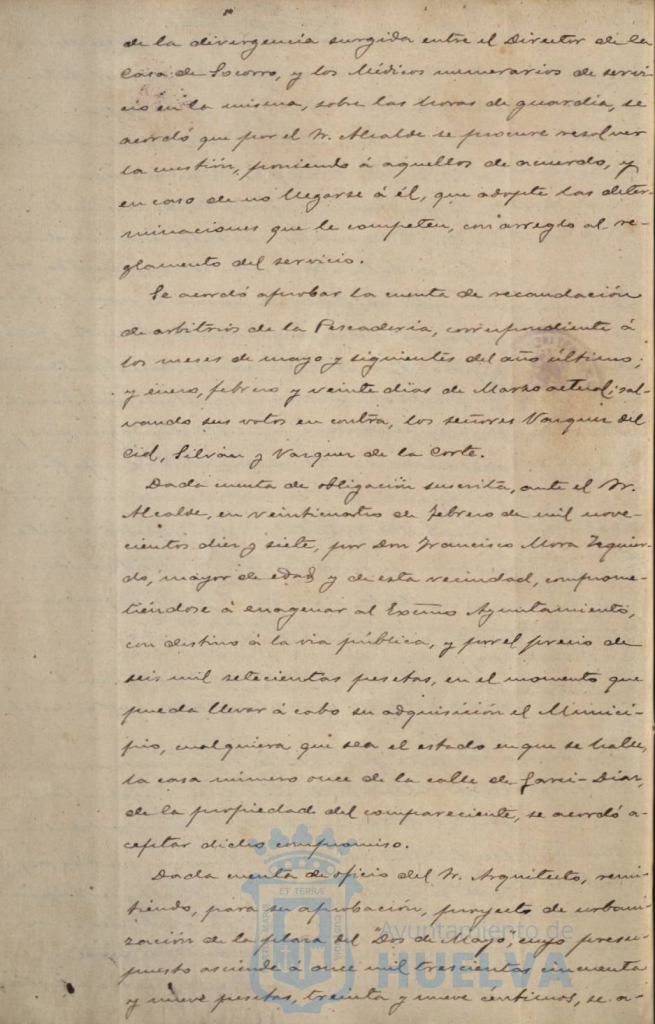 de la divergencia surgida entre el Director de la
Casa de Socorro, y los Médicos numerarios de servi-
cio en la misma, sobre las horas de guardia, se
acordó que por el Sr. Alcalde se procure resolver
la cuestión, poniendo á aquellos de acuerdo, y
en caso de no llegarse á él, que adopte las deter-
minaciones que le competen, con arreglo al re-
glamento del servicio.
Se acordó aprobar la cuenta de recaudación
de arbitrios de la Pescadería, correspondiente á
los meses de mayo y siguientes del año último;
y enero, febrero y veinte dias de Marzo actual; sal-
vando sus votos en contra, los señores Vazquez del
Cid, Silván y Vazquez de la Corte.
Dada cuenta de obligación suscrita, ante el Sr.
Alcalde, en veinticuatro de Febrero de mil nove-
cientos diez y siete, por Don Francisco Mora Izquier-
do, mayor de edad y de esta vecindad, comprome-
tiéndose á enagenar al Excmo Ayuntamiento,
con destino á la via pública, y por el precio de
seis mil setecientas pesetas, en el momento que
pueda llevar á cabo su adquisición el Munici-
pio, cualquiera que sea el estado en que se halle,
la casa número once de la calle de Garci-Diaz,
de la propiedad del compareciente, se acordó a-
ceptar dicho compromiso.
Dada cuenta de oficio del Sr. Arquitecto, remi-
tiendo, para su aprobación, proyecto de urbani-
zación de la plaza del "Dos de Mayo", cuyo presu-
puesto asciende á once mil trescientas cincuenta
y nueve pesetas, treinta y nueve céntimos, se a-
ET TERRAE
Ayuntamiento de
HUELVA